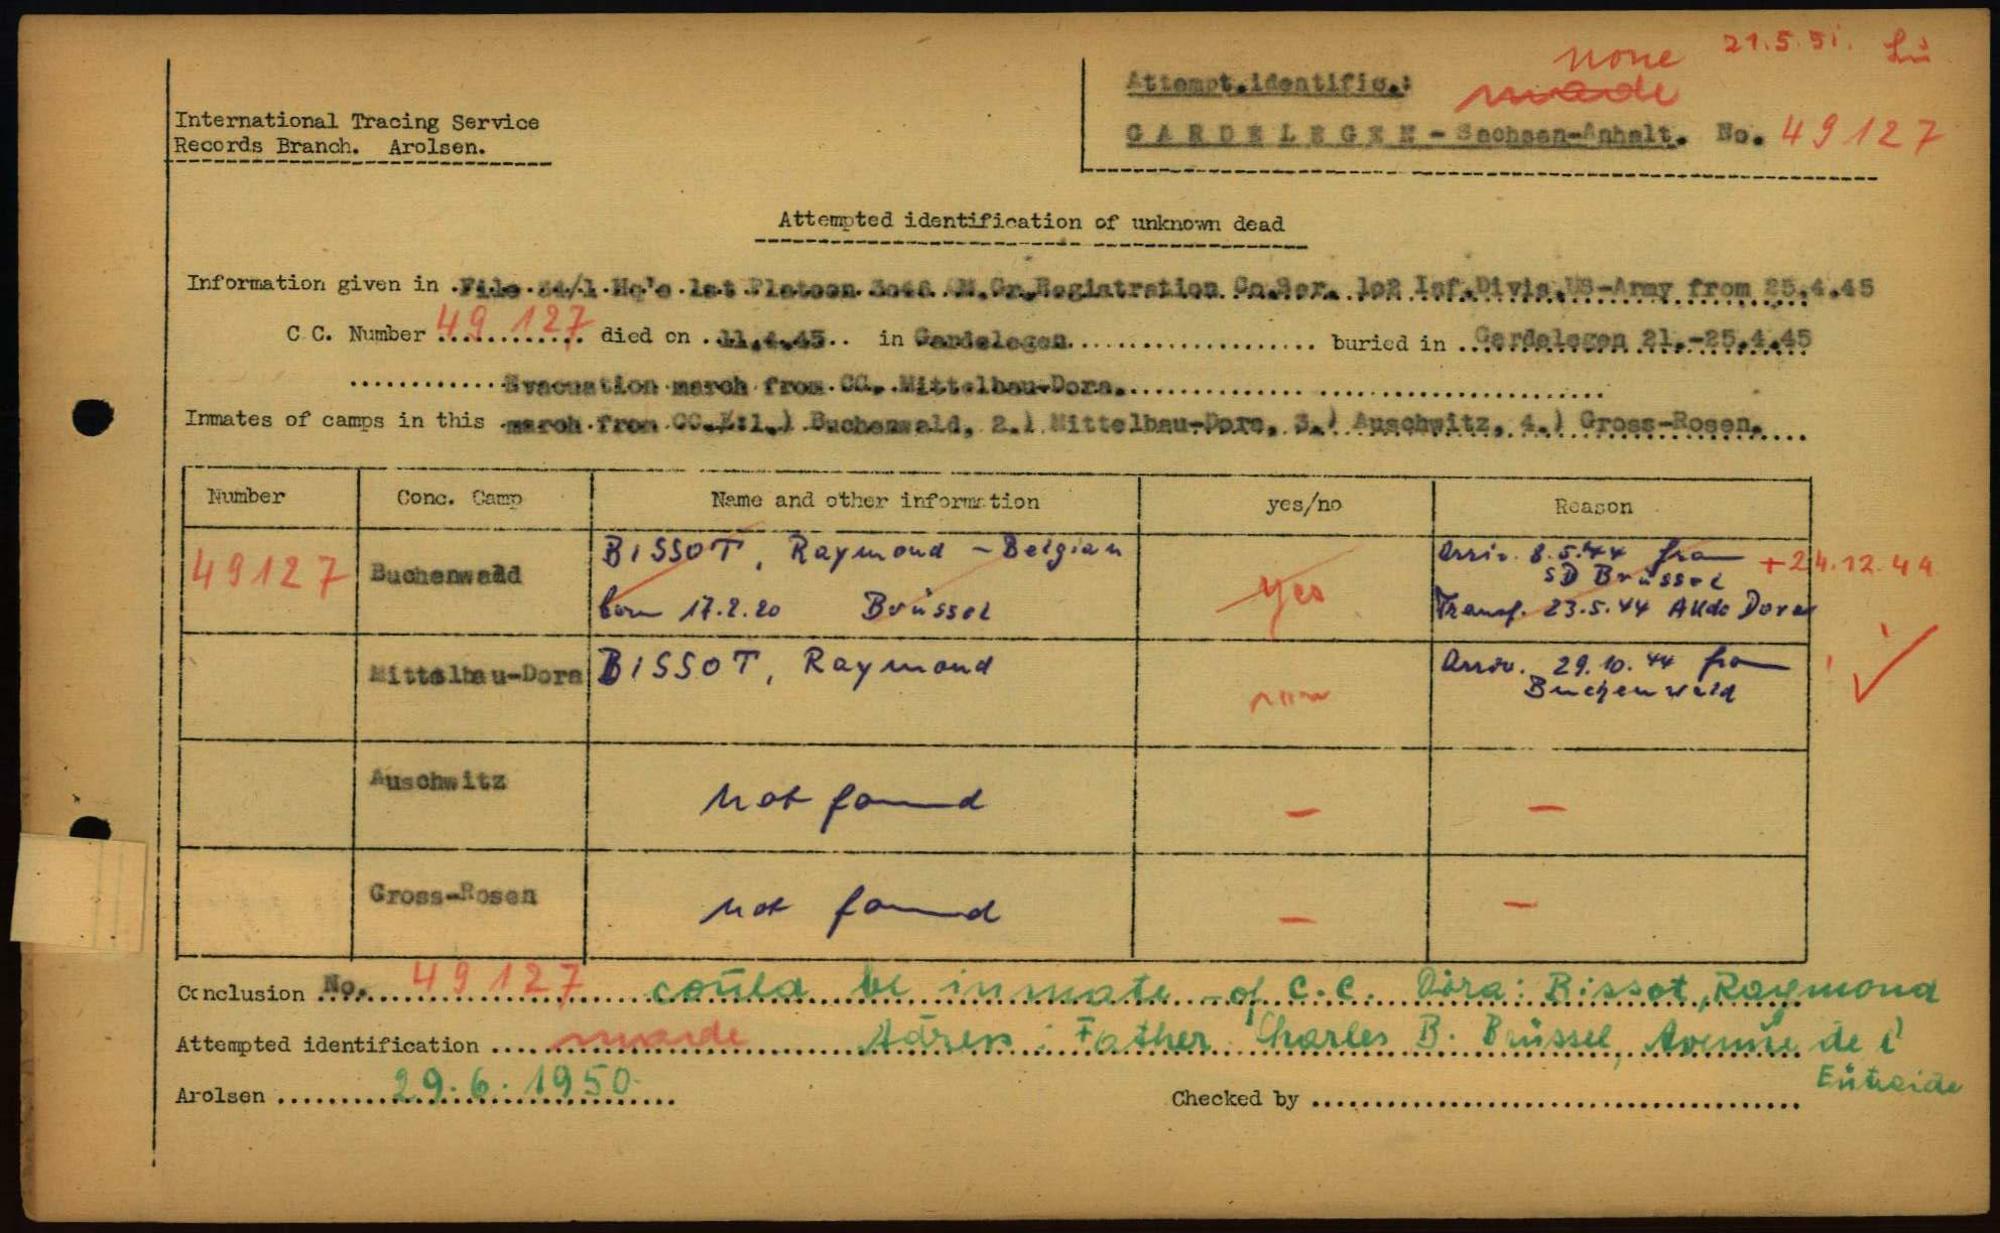 none 21.5.51.
Attempt.identific.: made
GARDELEGEN - Sachsen-Anhalt. No. 49127
International Tracing Service
Records Branch. Arolsen.
Attempted identification of unknown dead
Information given in File 54/1 Hq's 1st Platoon 3046 QM.Gr.Registration Co.Ser. 102 Inf.Divis.US-Army from 25.4.45
C.C. Number 49 127 died on 11.4.45 in Gardelegen buried in Gardelegen 21.-25.4.45
Evacuation march from CC. Mittelbau-Dora.
Inmates of camps in this march from CC.Z:1.) Buchenwald, 2.) Mittelbau-Dora, 3.) Auschwitz, 4.) Gross-Rosen.
Number Conc. Camp Name and other information yes/no Reason
49127 Buchenwald BISSOT, Raymond - Belgian yes Arriv. 8.5.44 from + 24.12.44
SD Brüssel
born 17.2.20 Brüssel Transf. 23.5.44 AKdo Dora
Mittelbau-Dora BISSOT, Raymond Arriv. 29.10.44 from
Buchenwald
Auschwitz not found — —
Gross-Rosen not found — —
Conclusion No. 49127 could be inmate of C.C. Dora: Bissot, Raymond
Attempted identification made Adress: Father Charles B. Brüssel, Avenue de l'
Arolsen 29.6.1950 Checked by